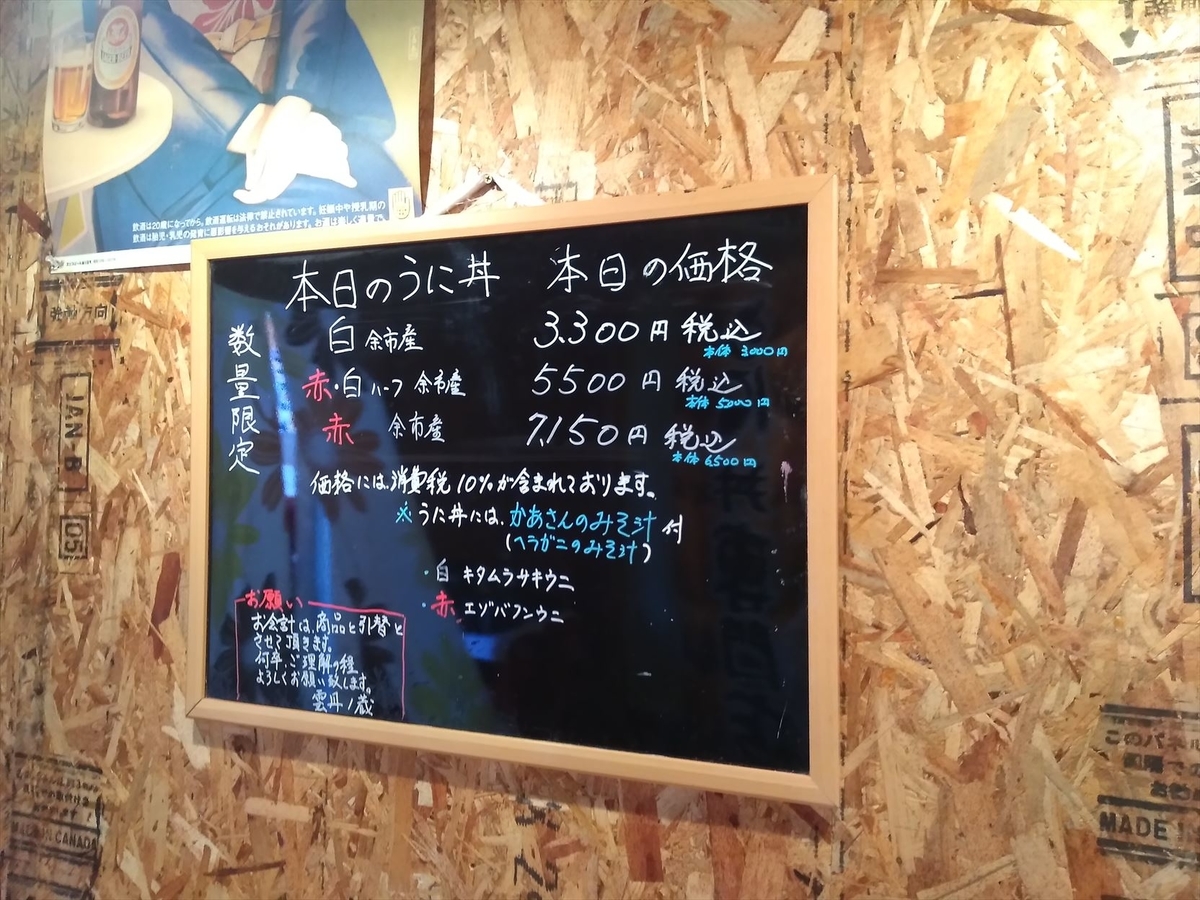 飲酒は20歳になってから。飲酒運転は法律で禁止されています。妊娠中や授乳期の
飲酒は胎児・乳児の発育に悪影響を与えるおそれがあります。お酒は楽しく適量で
本日のうに丼 本日の価格
数量限定
白 余市産 3.300円 税込
本体 3,000円
赤・白 ハーフ 余市産 5500円 税込
本体 5000円
赤 余市産 7,150円 税込
本体 6500円
価格には、消費税10%が含まれております。
※うに丼には、かあさんのみそ汁 付
(ヘラガニのみそ汁)
・白 キタムラサキウニ
・赤 エゾバフンウニ
お願い
お会計は、商品と引替と
させて頂きます。
何卒、ご理解の程
よろしくお願い致します。
雲丹ノ蔵
JAN-B
05
MADE IN CANADA
このパネ
MADE